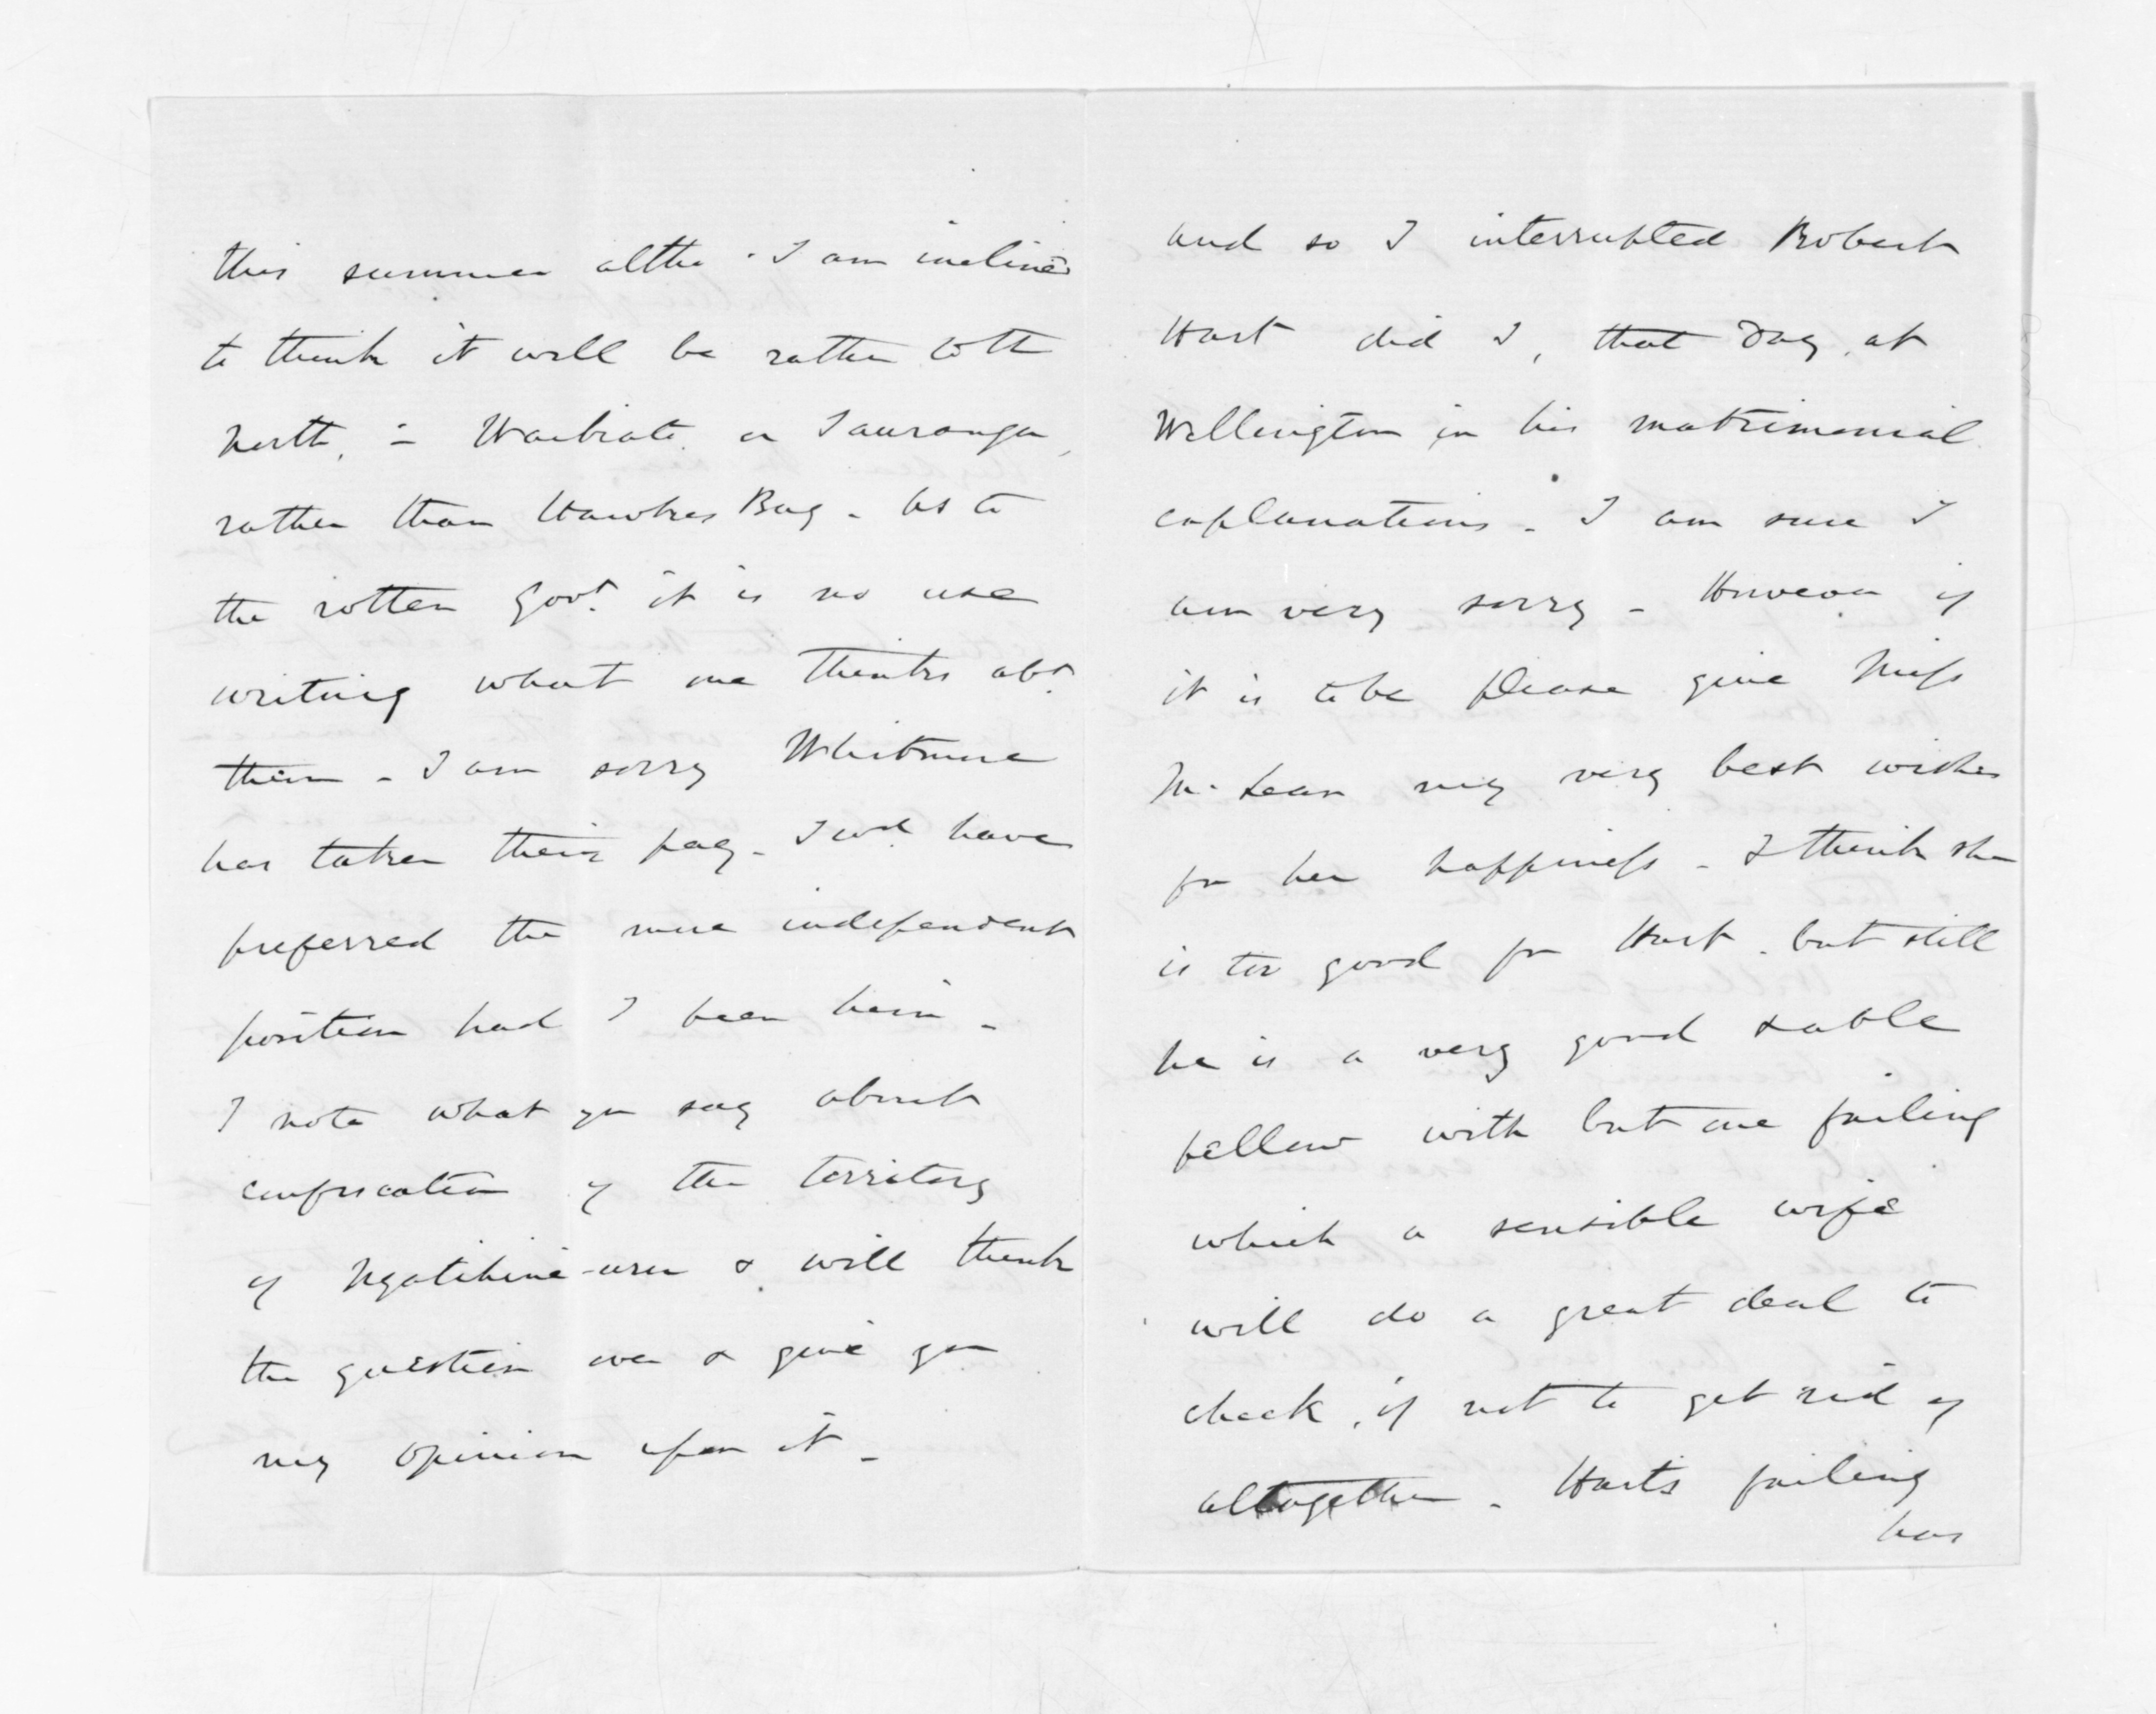 this summer altho' I am inclined
to think it will be rather to the
North, - Waikato or Tauranga,
rather than Hawkes Bay - As to
the rotten Govt. it is no use
writing what one thinks abt.
them - I am sorry Whitmore
has taken their pay - I wd. have
preferred the more independent
position had I been him -
I note what you say about
confiscation of the territory
of Ngatihine-uru & will think
the question over & give you
my opinion upon it -
and so I interrupted Robert
Hart did I, that day, at
Wellington in his matrimonial
explanations - I am sure I
am very sorry - However if
it is to be please give Miss
McLean my very best wishes
for her happiness - I think she
is too good for Hart - but still
he is a very good & able
fellow with but one failing
which a sensible wife
will do a great deal to
check, if not to get rid of
altogether - Hart's failing
has